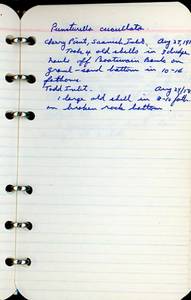 Puncturella cucullata
Cherry Point, Saanich Inlet. Aug 27, 19
Took 4 old shells in 3 dredge
hauls off Boatswain Bank on
gravel-sand bottom in 10-16
fathoms
Todd Inlet. Aug 29/
1 large old shell in 8-10 fath.
on broken rock bottom.